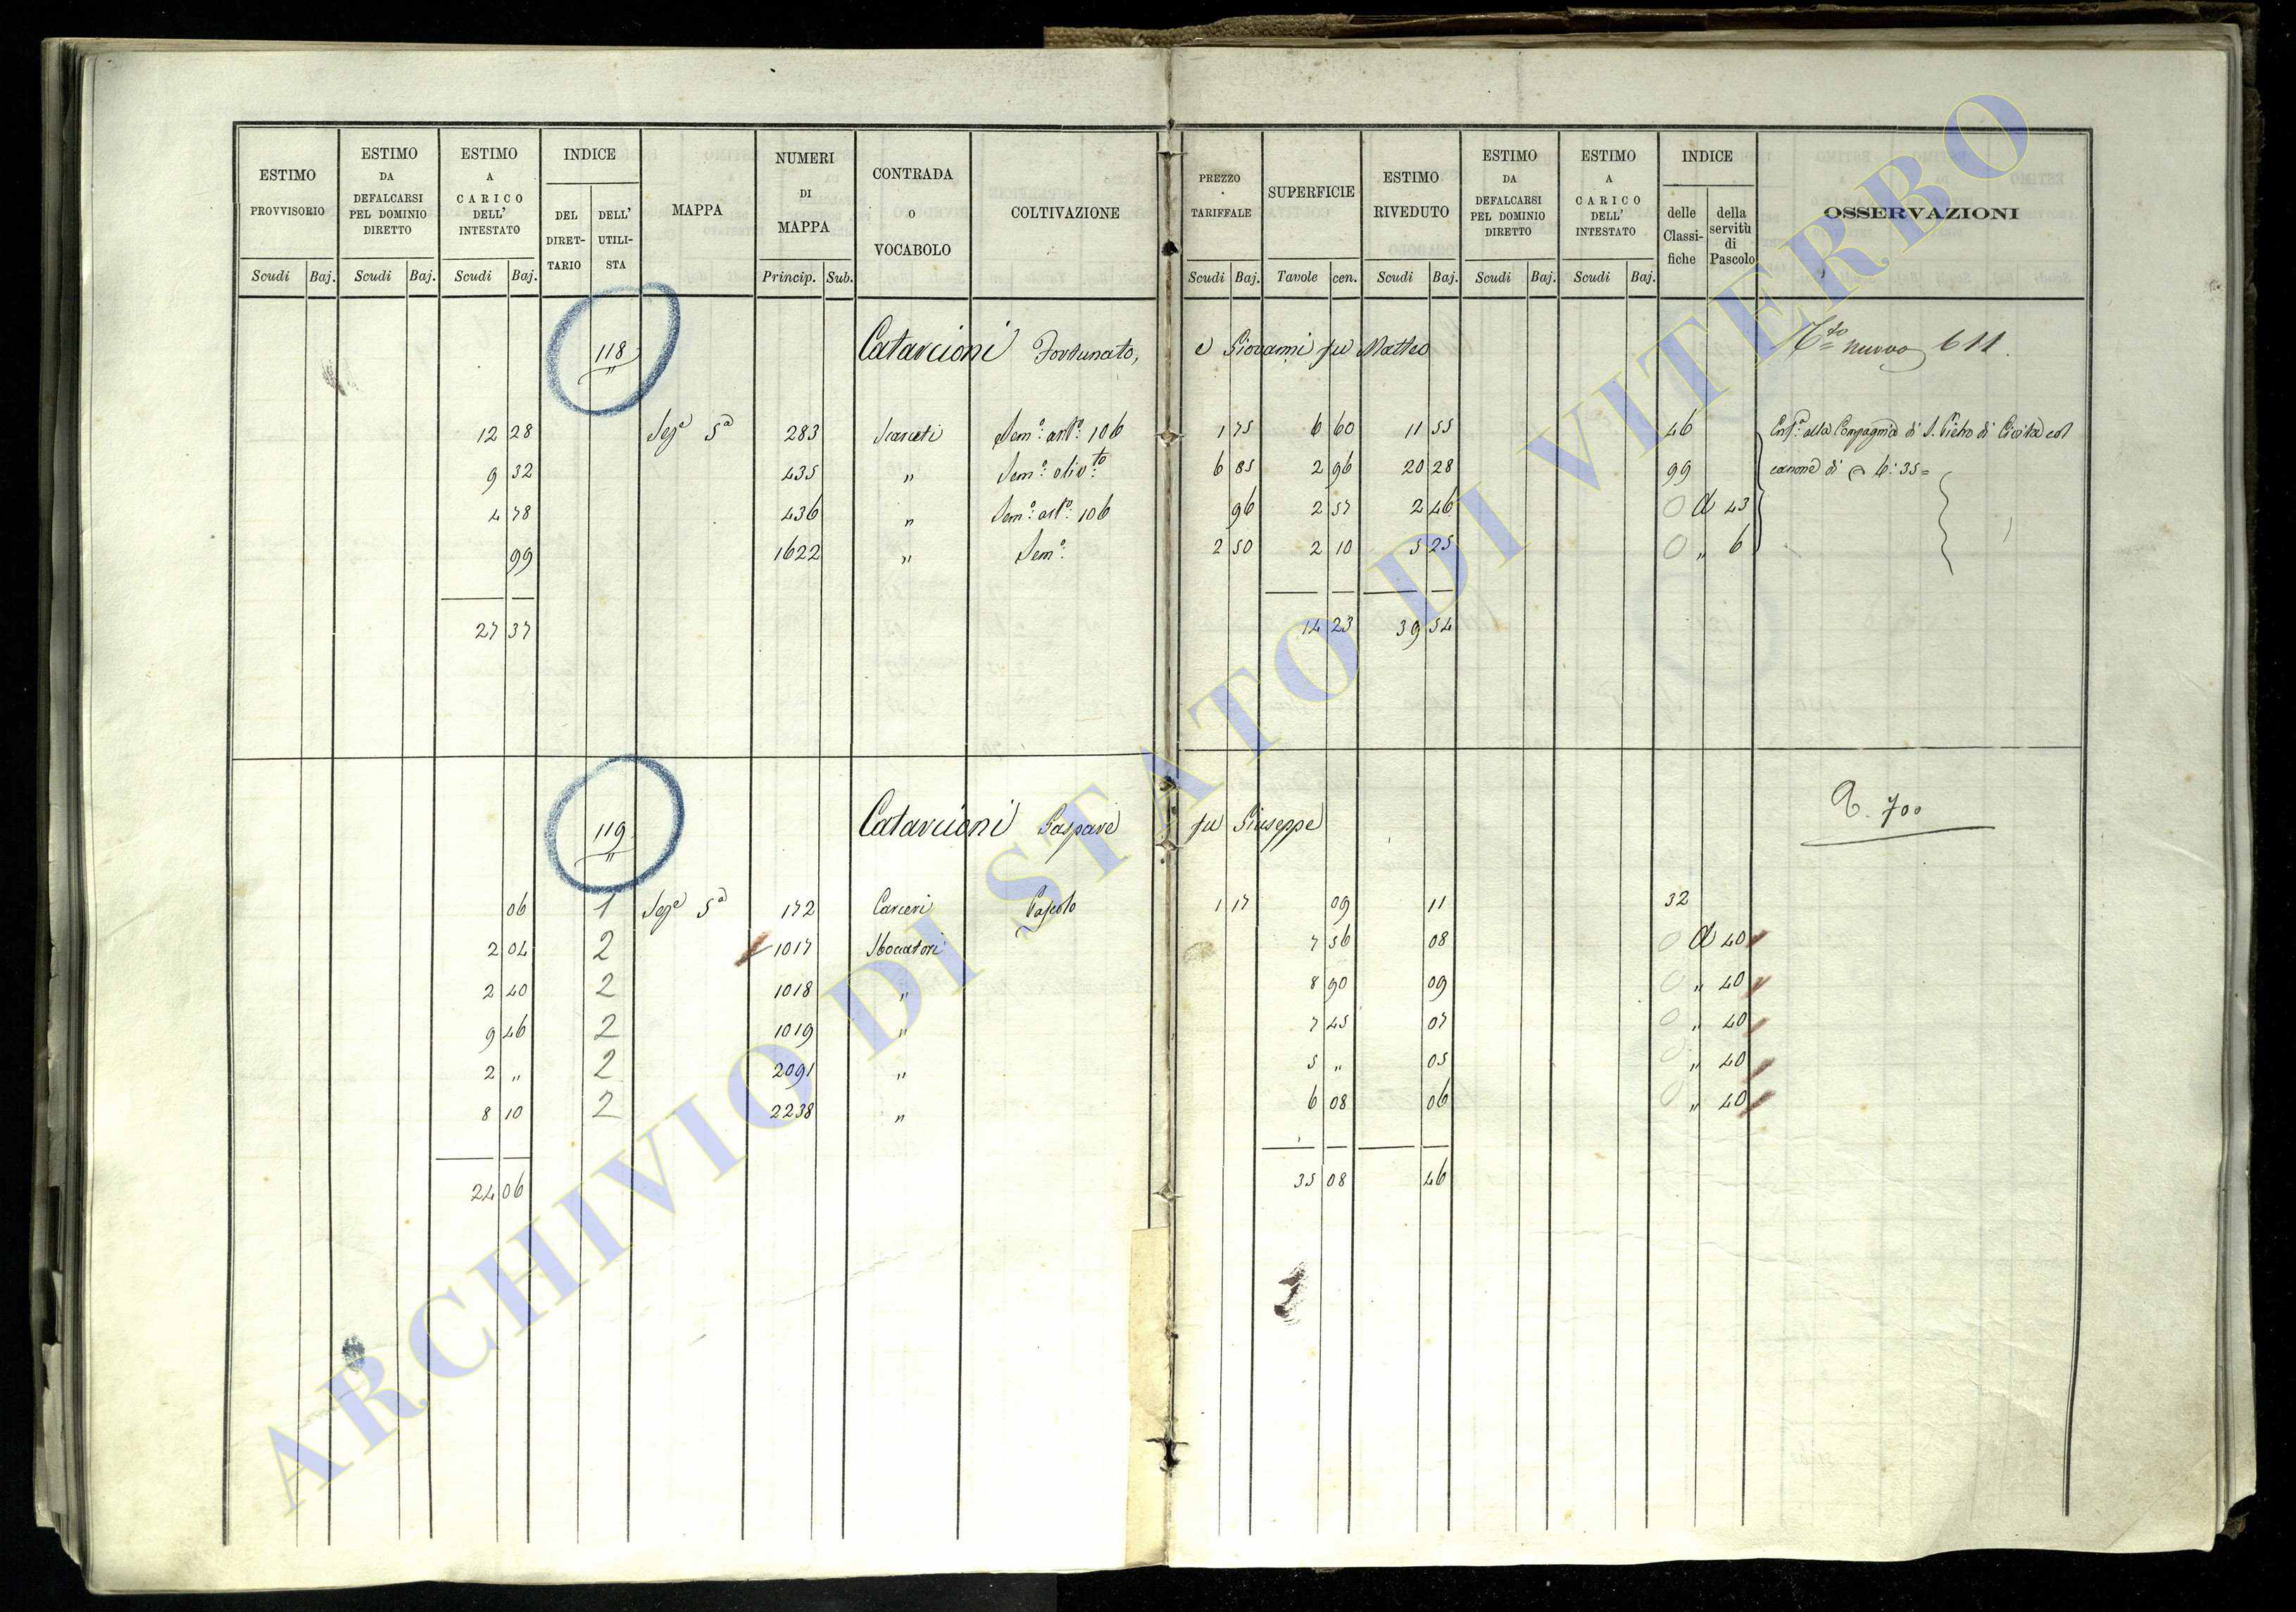 ESTIMO PROVVISORIO Scudi Baj.
ESTIMO DA DEFALCARSI PEL DOMINIO DIRETTO Scudi Baj.
ESTIMO A CARICO DELL' INTESTATO Scudi Baj.
INDICE DEL DIRETTARIO DELL' UTILISTA
MAPPA
NUMERI DI MAPPA Princip. Sub.
CONTRADA O VOCABOLO
COLTIVAZIONE
PREZZO TARIFFALE Scudi Baj.
SUPERFICIE Tavole cen.
ESTIMO RIVEDUTO Scudi Baj.
ESTIMO DA DEFALCARSI PEL DOMINIO DIRETTO Scudi Baj.
ESTIMO A CARICO DELL' INTESTATO Scudi Baj.
INDICE delle Classifiche della servitù di Pascolo
OSSERVAZIONI
118 Catarcioni Fortunato, e Giovanni fu Matteo nuovo 611.
12 28 Seze 5a 283 Scarceti Sem.o art.o 106 1 75 6 60 11 55 46 Enf.a alla Compagnia di S. Pietro di Civita col
9 32 435 " Sem.o oliv.to 6 85 2 96 20 28 99 canone di 6:35=
4 78 436 " Sem.o art.o 106 96 2 57 2 46 0 d 43
99 1622 " Sem.o 2 50 2 10 5 25 0 " 6
27 37 14 23 39 54
119 Catarcioni Gaspare fu Giuseppe 700
06 1 Seze 5a 172 Carceri Pascolo 1 17 09 11 32
2 04 2 1017 Sboccatori 7 56 08 0 d 40
2 40 2 1018 " 8 90 09 0 " 40
9 46 2 1019 " 7 45 07 0 " 40
2 " 2 2091 " 5 " 05 0 " 40
8 10 2 2238 " 6 08 06 0 " 40
24 06 35 08 46
ARCHIVIO DI STATO DI VITERBO